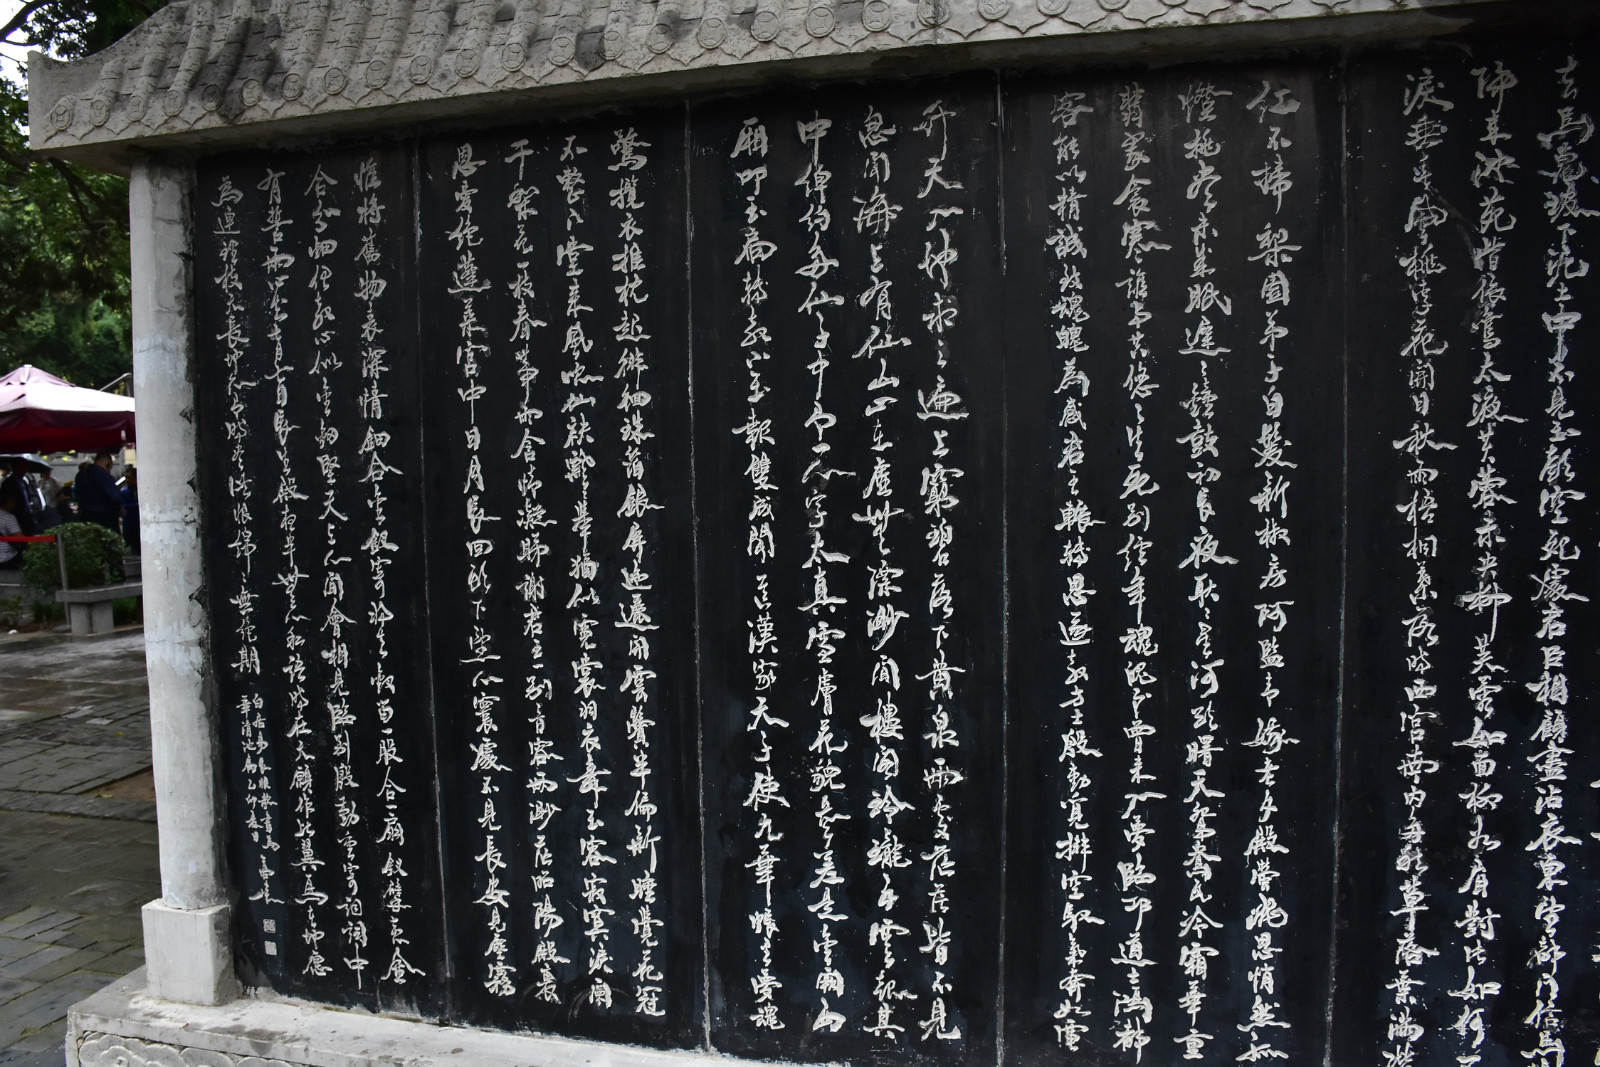 去馬嵬坡下泥土中不見玉顏空死處君臣相顧盡沾衣東望都門信馬
歸來池苑皆依舊太液芙蓉未央柳芙蓉如面柳如眉對此如何不
淚垂春風桃李花開日秋雨梧桐葉落時西宮南內多秋草落葉滿階
紅不掃梨園弟子白髮新椒房阿監青娥老夕殿螢飛思悄然孤
燈挑盡未成眠遲〻鐘鼓初長夜耿〻星河欲曙天鴛鴦瓦冷霜華重
翡翠衾寒誰與共悠〻生死別經年魂魄不曾來入夢臨邛道士鴻都
客能以精誠致魂魄為感君王輾轉思遂教方士殷勤覓排空馭氣奔如電
升天入地求之遍上窮碧落下黃泉兩處茫茫皆不見
忽聞海上有仙山山在虛無縹渺間樓閣玲瓏五雲起其
中綽約多仙子中有一人字太真雪膚花貌參差是金闕西
廂叩玉扃轉教小玉報雙成聞道漢家天子使九華帳裏夢魂
驚攬衣推枕起徘徊珠箔銀屏迤邐開雲鬢半偏新睡覺花冠
不整下堂來風吹仙袂飄〻舉猶似霓裳羽衣舞玉容寂寞淚闌
干梨花一枝春帶雨含情凝睇謝君王一別音容兩渺茫昭陽殿裏
恩愛絕蓬萊宮中日月長回頭下望人寰處不見長安見塵霧
惟將舊物表深情鈿合金釵寄將去釵留一股合一扇釵擘黃金
合分鈿但教心似金鈿堅天上人間會相見臨別殷勤重寄詞詞中
有誓兩心知七月七日長生殿夜半無人私語時在天願作比翼鳥在地願
為連理枝天長地久有時盡此恨綿〻無絕期
白居易長恨歌書為
華清池屬乙卯春月